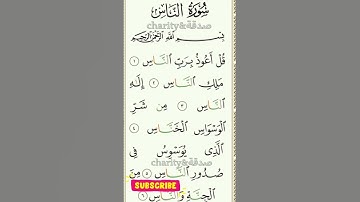 سُورَةُ النَّاسِ
صدقة&charity
بِسْمِ اللَّهِ الرَّحْمَٰنِ الرَّحِيمِ
قُلْ أَعُوذُ بِرَبِّ النَّاسِ ١
مَلِكِ النَّاسِ ٢ إِلَٰهِ
النَّاسِ ٣ مِن شَرِّ
الْوَسْوَاسِ الْخَنَّاسِ ٤
الَّذِي يُوَسْوِسُ فِي
صدقة&charity
صُدُورِ النَّاسِ ٥ مِنَ
SUBSCRIBE
الْجِنَّةِ وَالنَّاسِ ٦